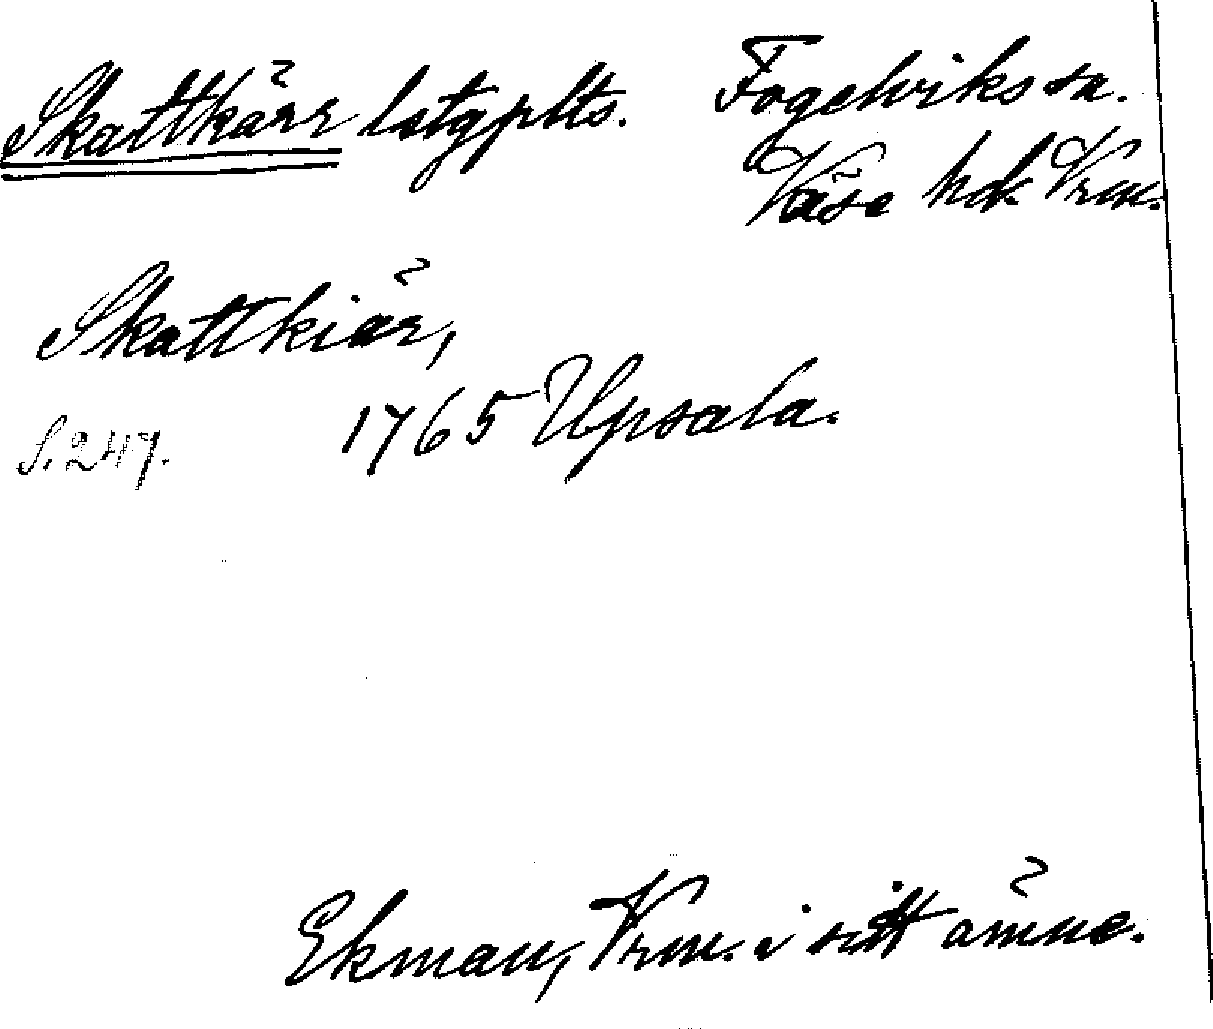 Skattkärr lstgplts. Fogelviks sn.
Väse hd. Vrm.
Skattkiär,
1765 Upsala.
S. 247.
Ekman, Vrm. i sitt ämne.